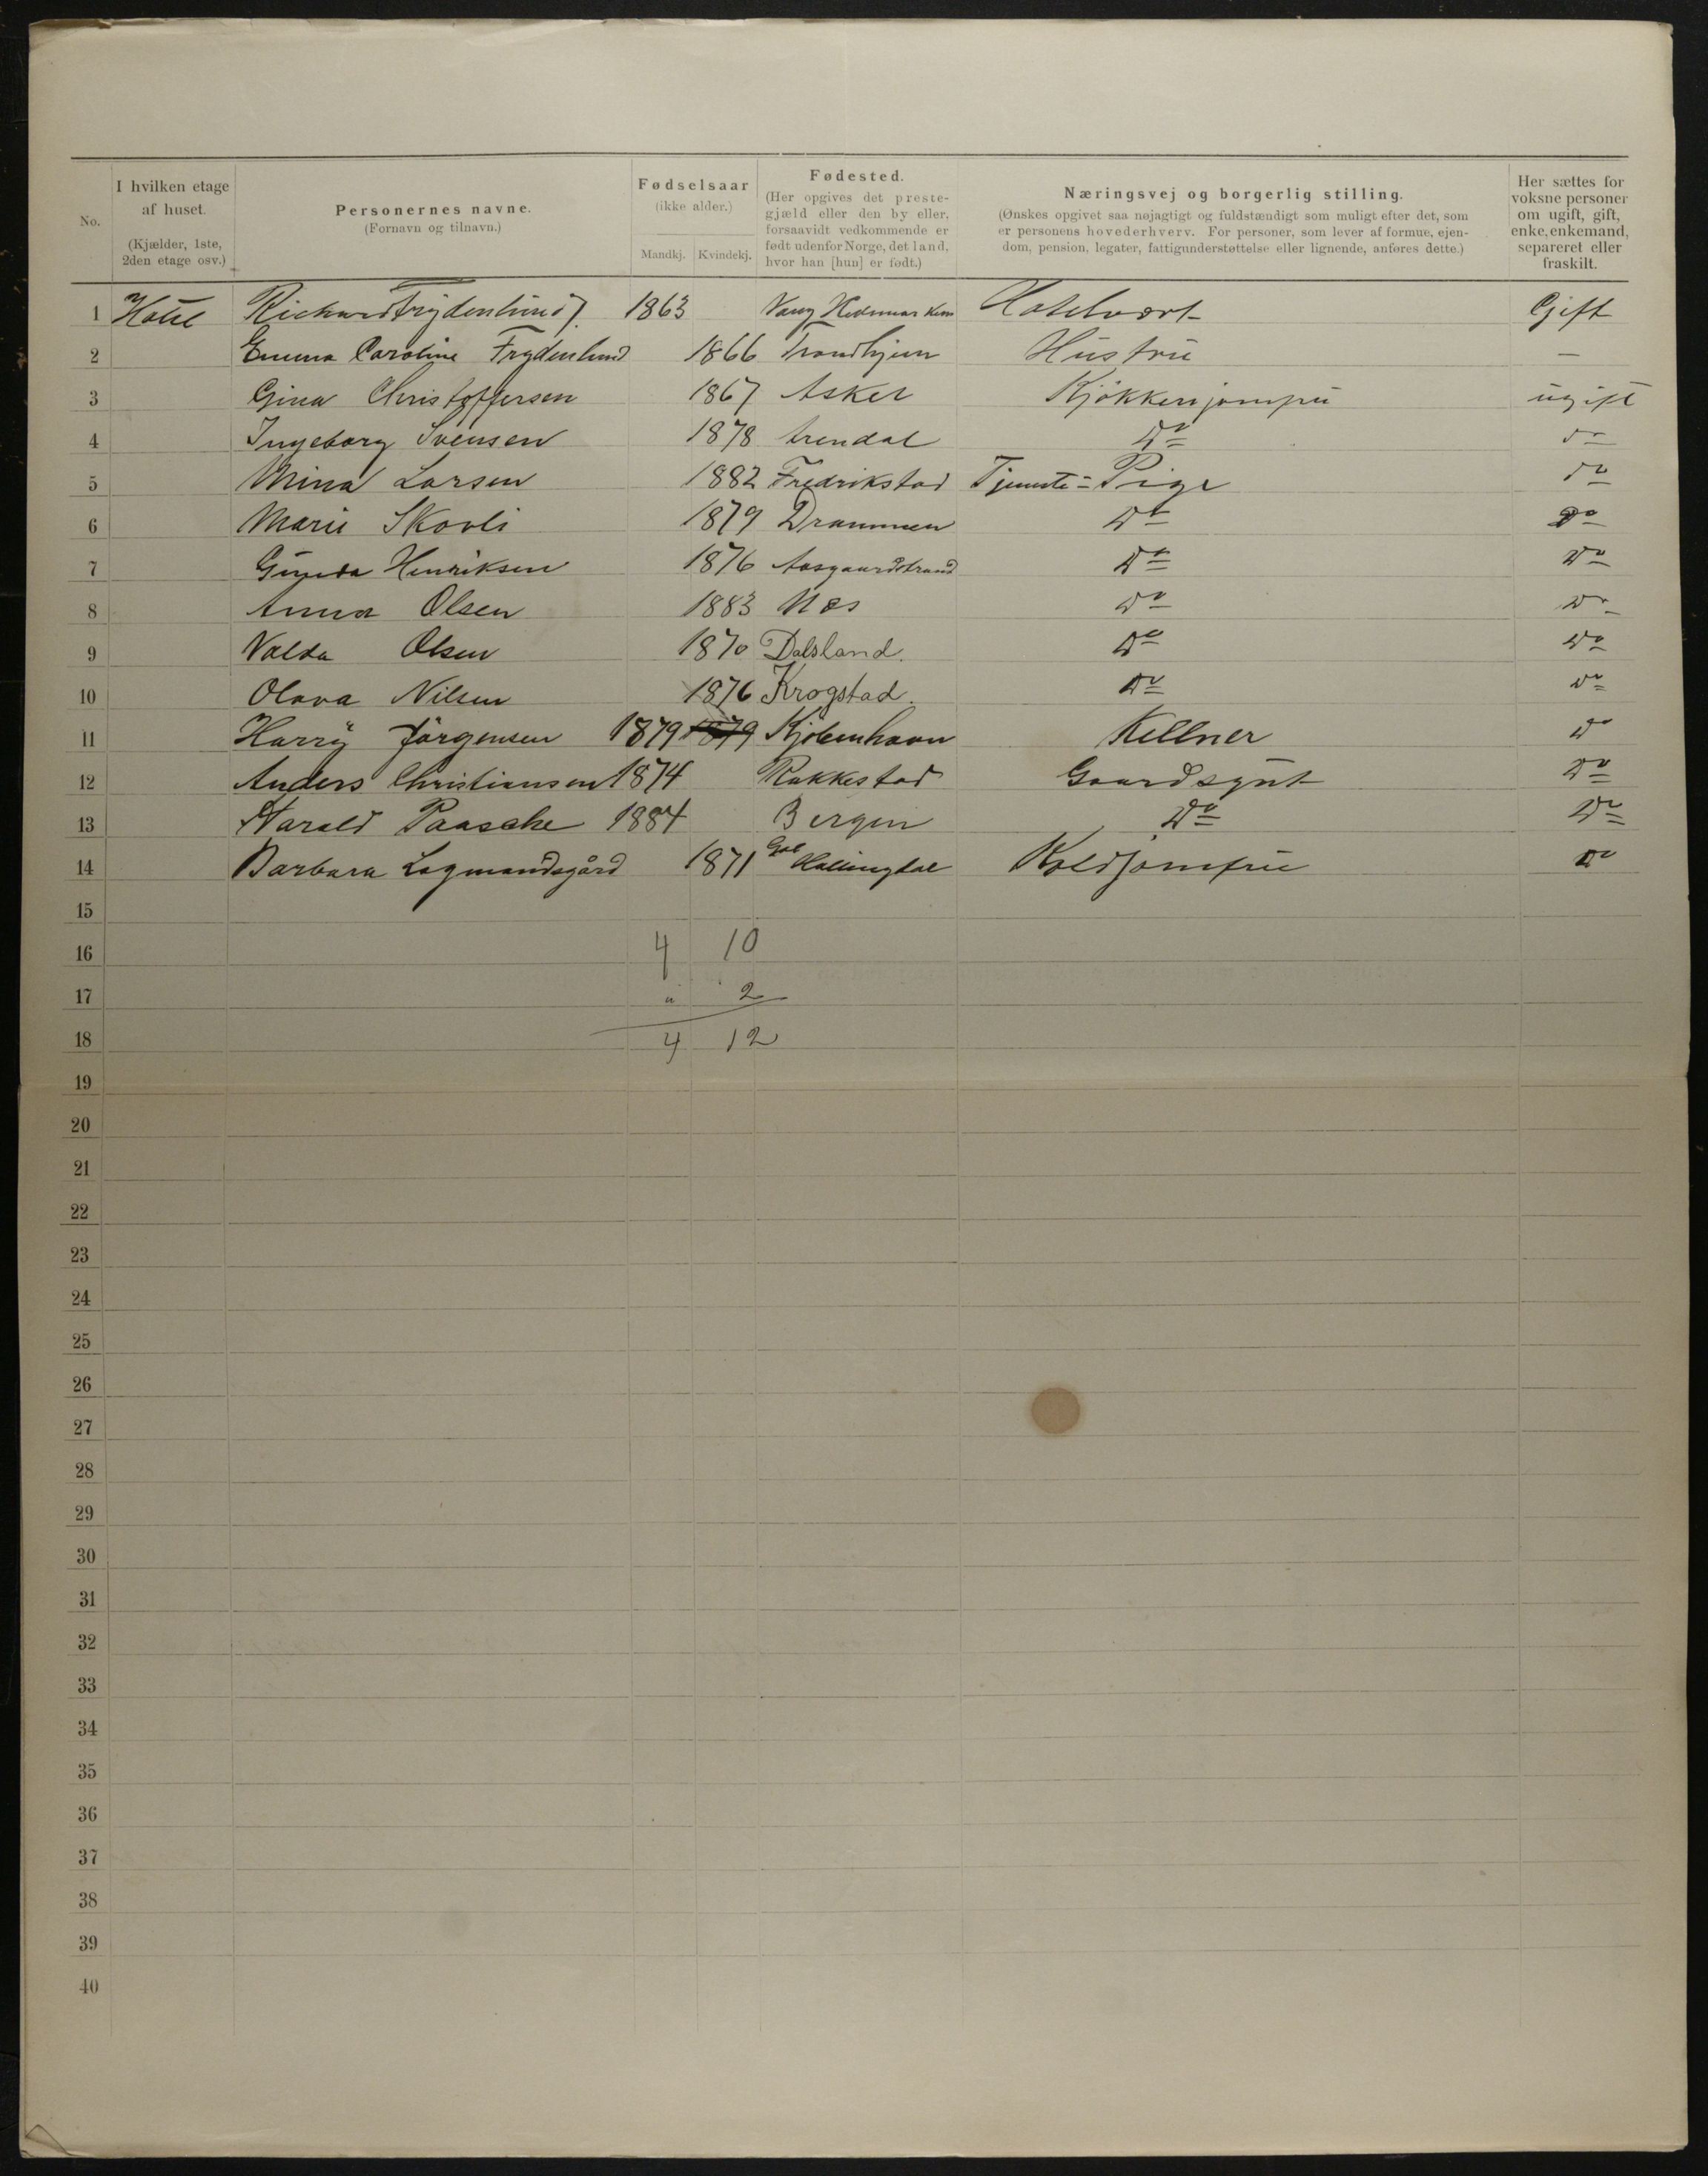 No.
I hvilken etage af huset. (Kjælder, 1ste, 2den etage osv.)
Personernes navne. (Fornavn og tilnavn.)
Fødselsaar (ikke alder.) Mandkj. Kvindekj.
Fødested. (Her opgives det prestegjæld eller den by eller, forsaavidt vedkommende er født udenfor Norge, det land, hvor han [hun] er født.)
Næringsvej og borgerlig stilling. (Ønskes opgivet saa nøjagtigt og fuldstændigt som muligt efter det, som er personens hovederhverv. For personer, som lever af formue, ejendom, pension, legater, fattigunderstøttelse eller lignende, anføres dette.)
Her sættes for voksne personer om ugift, gift, enke, enkemand, separeret eller fraskilt.
1 Hotel Richard Frydenlund 1863 Vang Hedemarken Hotelvært Gift
2 Emma Caroline Frydenlund 1866 Trondhjem Hustru —
3 Gina Christoffersen 1867 Asker Kjøkkenjomfru ugift
4 Ingeborg Svensen 1878 Arendal Do do
5 Mina Larsen 1882 Fredrikstad Tjeneste-Pige do
6 Marie Skovli 1879 Drammen Do Do
7 Gunda Henriksen 1876 Aasgaardstrand Do Do
8 Anna Olsen 1883 Næs Do Do
9 Valda Olsen 1870 Dalsland. Do Do
10 Olava Nilsen 1876 Krogstad. Do Do
11 Harry Jörgensen 1879 1879 Kjöbenhavn Kellner Do
12 Anders Christiansen 1874 Rakkestad Gaardsgut Do
13 Harald Paasche 1884 Bergen Do Do
14 Barbara Lagmandsgård 1871 Gol Hallingdal Koldjomfru Do
15
16 4 10
17 " 2
18 4 12
19
20
21
22
23
24
25
26
27
28
29
30
31
32
33
34
35
36
37
38
39
40